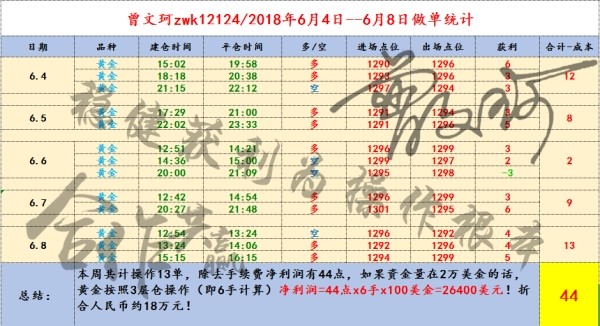 曾文珂zwk12124/2018年6月4日--6月8日做单统计
日期 品种 建仓时间 平仓时间 多/空 进场点位 出场点位 获利 合计-成本
黄金 15:02 19:58 多 1290 1296 6
6.4 黄金 18:18 20:38 多 1293 1296 3 12
黄金 21:15 22:12 空 1297 3
黄金 17:29 21:00 多 1291 1294 3
6.5 8
黄金 22:02 23:33 多 1291 1296 5
黄金 12:51 14:21 多 1296 1299 3
6.6 黄金 14:36 15:00 空 2 2
黄金 20:00 21:09 空 1295 1298 -3
黄金 12:42 14:54 多 1295 1299 4
6.7 9
黄金 20:27 21:48 1301 1296 5
黄金 12:54 13:24 空 1296 1292 4
6.8 黄金 13:24 14:06 多 1292 1296 4 13
黄金 15:15 16:15 多 1294 1299 5
总结： 本周共计操作13单，除去手续费净利润有44点，如果资金量在2万美金的话，
黄金按照3层仓操作（即6手计算）净利润=44点x6手x100美金=26400美元！折
合人民币约18万元！
44
稳健获利为操作根本
合作共赢
曾文珂